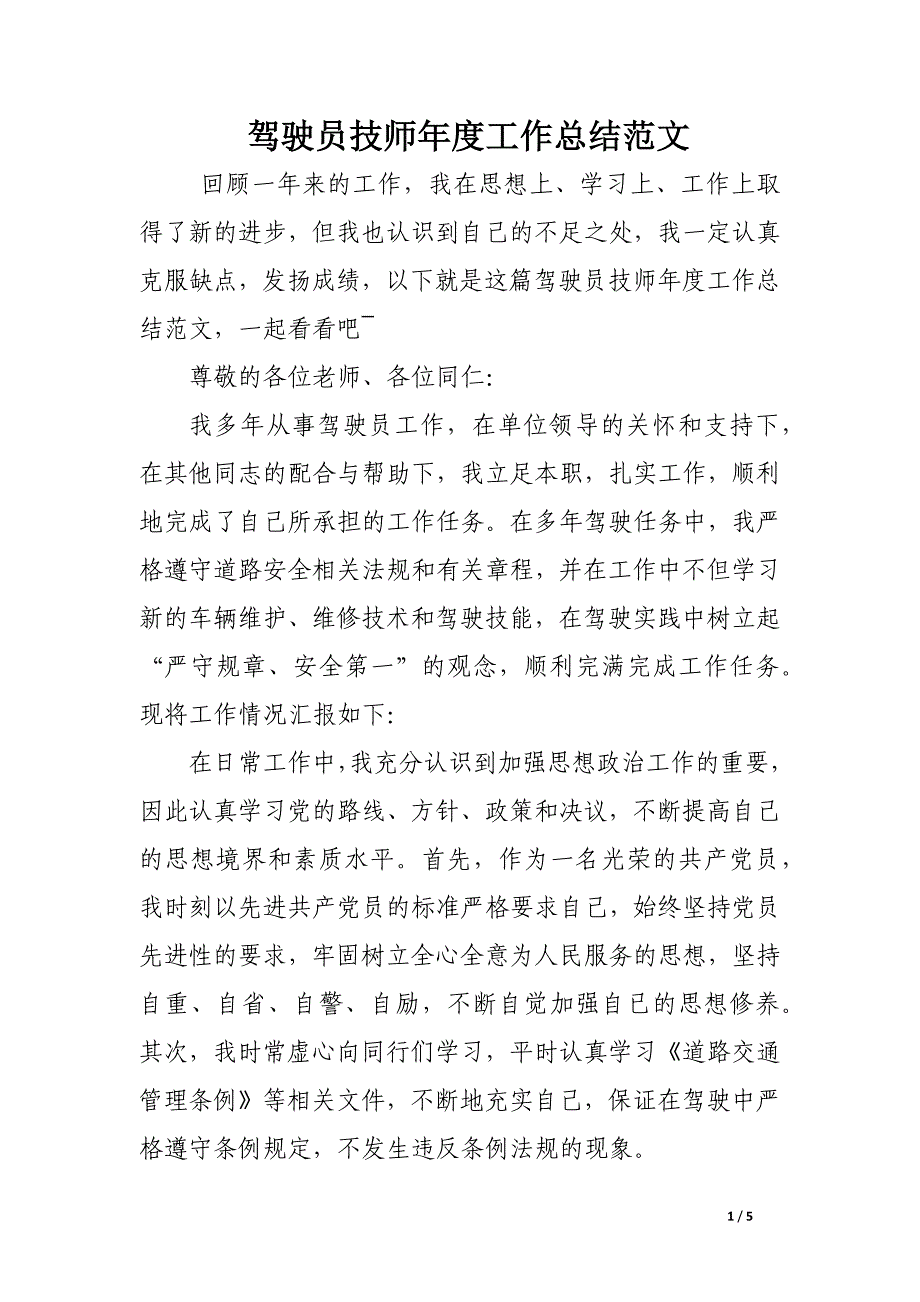 驾驶员技师年度工作总结范文
回顾一年来的工作，我在思想上、学习上、工作上取
得了新的进步，但我也认识到自己的不足之处，我一定认真
克服缺点，发扬成绩，以下就是这篇驾驶员技师年度工作总
结范文，一起看看吧¯
尊敬的各位老师、各位同仁：
我多年从事驾驶员工作，在单位领导的关怀和支持下，
在其他同志的配合与帮助下，我立足本职，扎实工作，顺利
地完成了自己所承担的工作任务。在多年驾驶任务中，我严
格遵守道路安全相关法规和有关章程，并在工作中不但学习
新的车辆维护、维修技术和驾驶技能，在驾驶实践中树立起
“严守规章、安全第一”的观念，顺利完满完成工作任务。
现将工作情况汇报如下：
在日常工作中，我充分认识到加强思想政治工作的重要，
因此认真学习党的路线、方针、政策和决议，不断提高自己
的思想境界和素质水平。首先，作为一名光荣的共产党员，
我时刻以先进共产党员的标准严格要求自己，始终坚持党员
先进性的要求，牢固树立全心全意为人民服务的思想，坚持
自重、自省、自警、自励，不断自觉加强自已的思想修养。
其次，我时常虚心向同行们学习，平时认真学习《道路交通
管理条例》等相关文件，不断地充实自己，保证在驾驶中严
格遵守条例规定，不发生违反条例法规的现象。
1 / 5